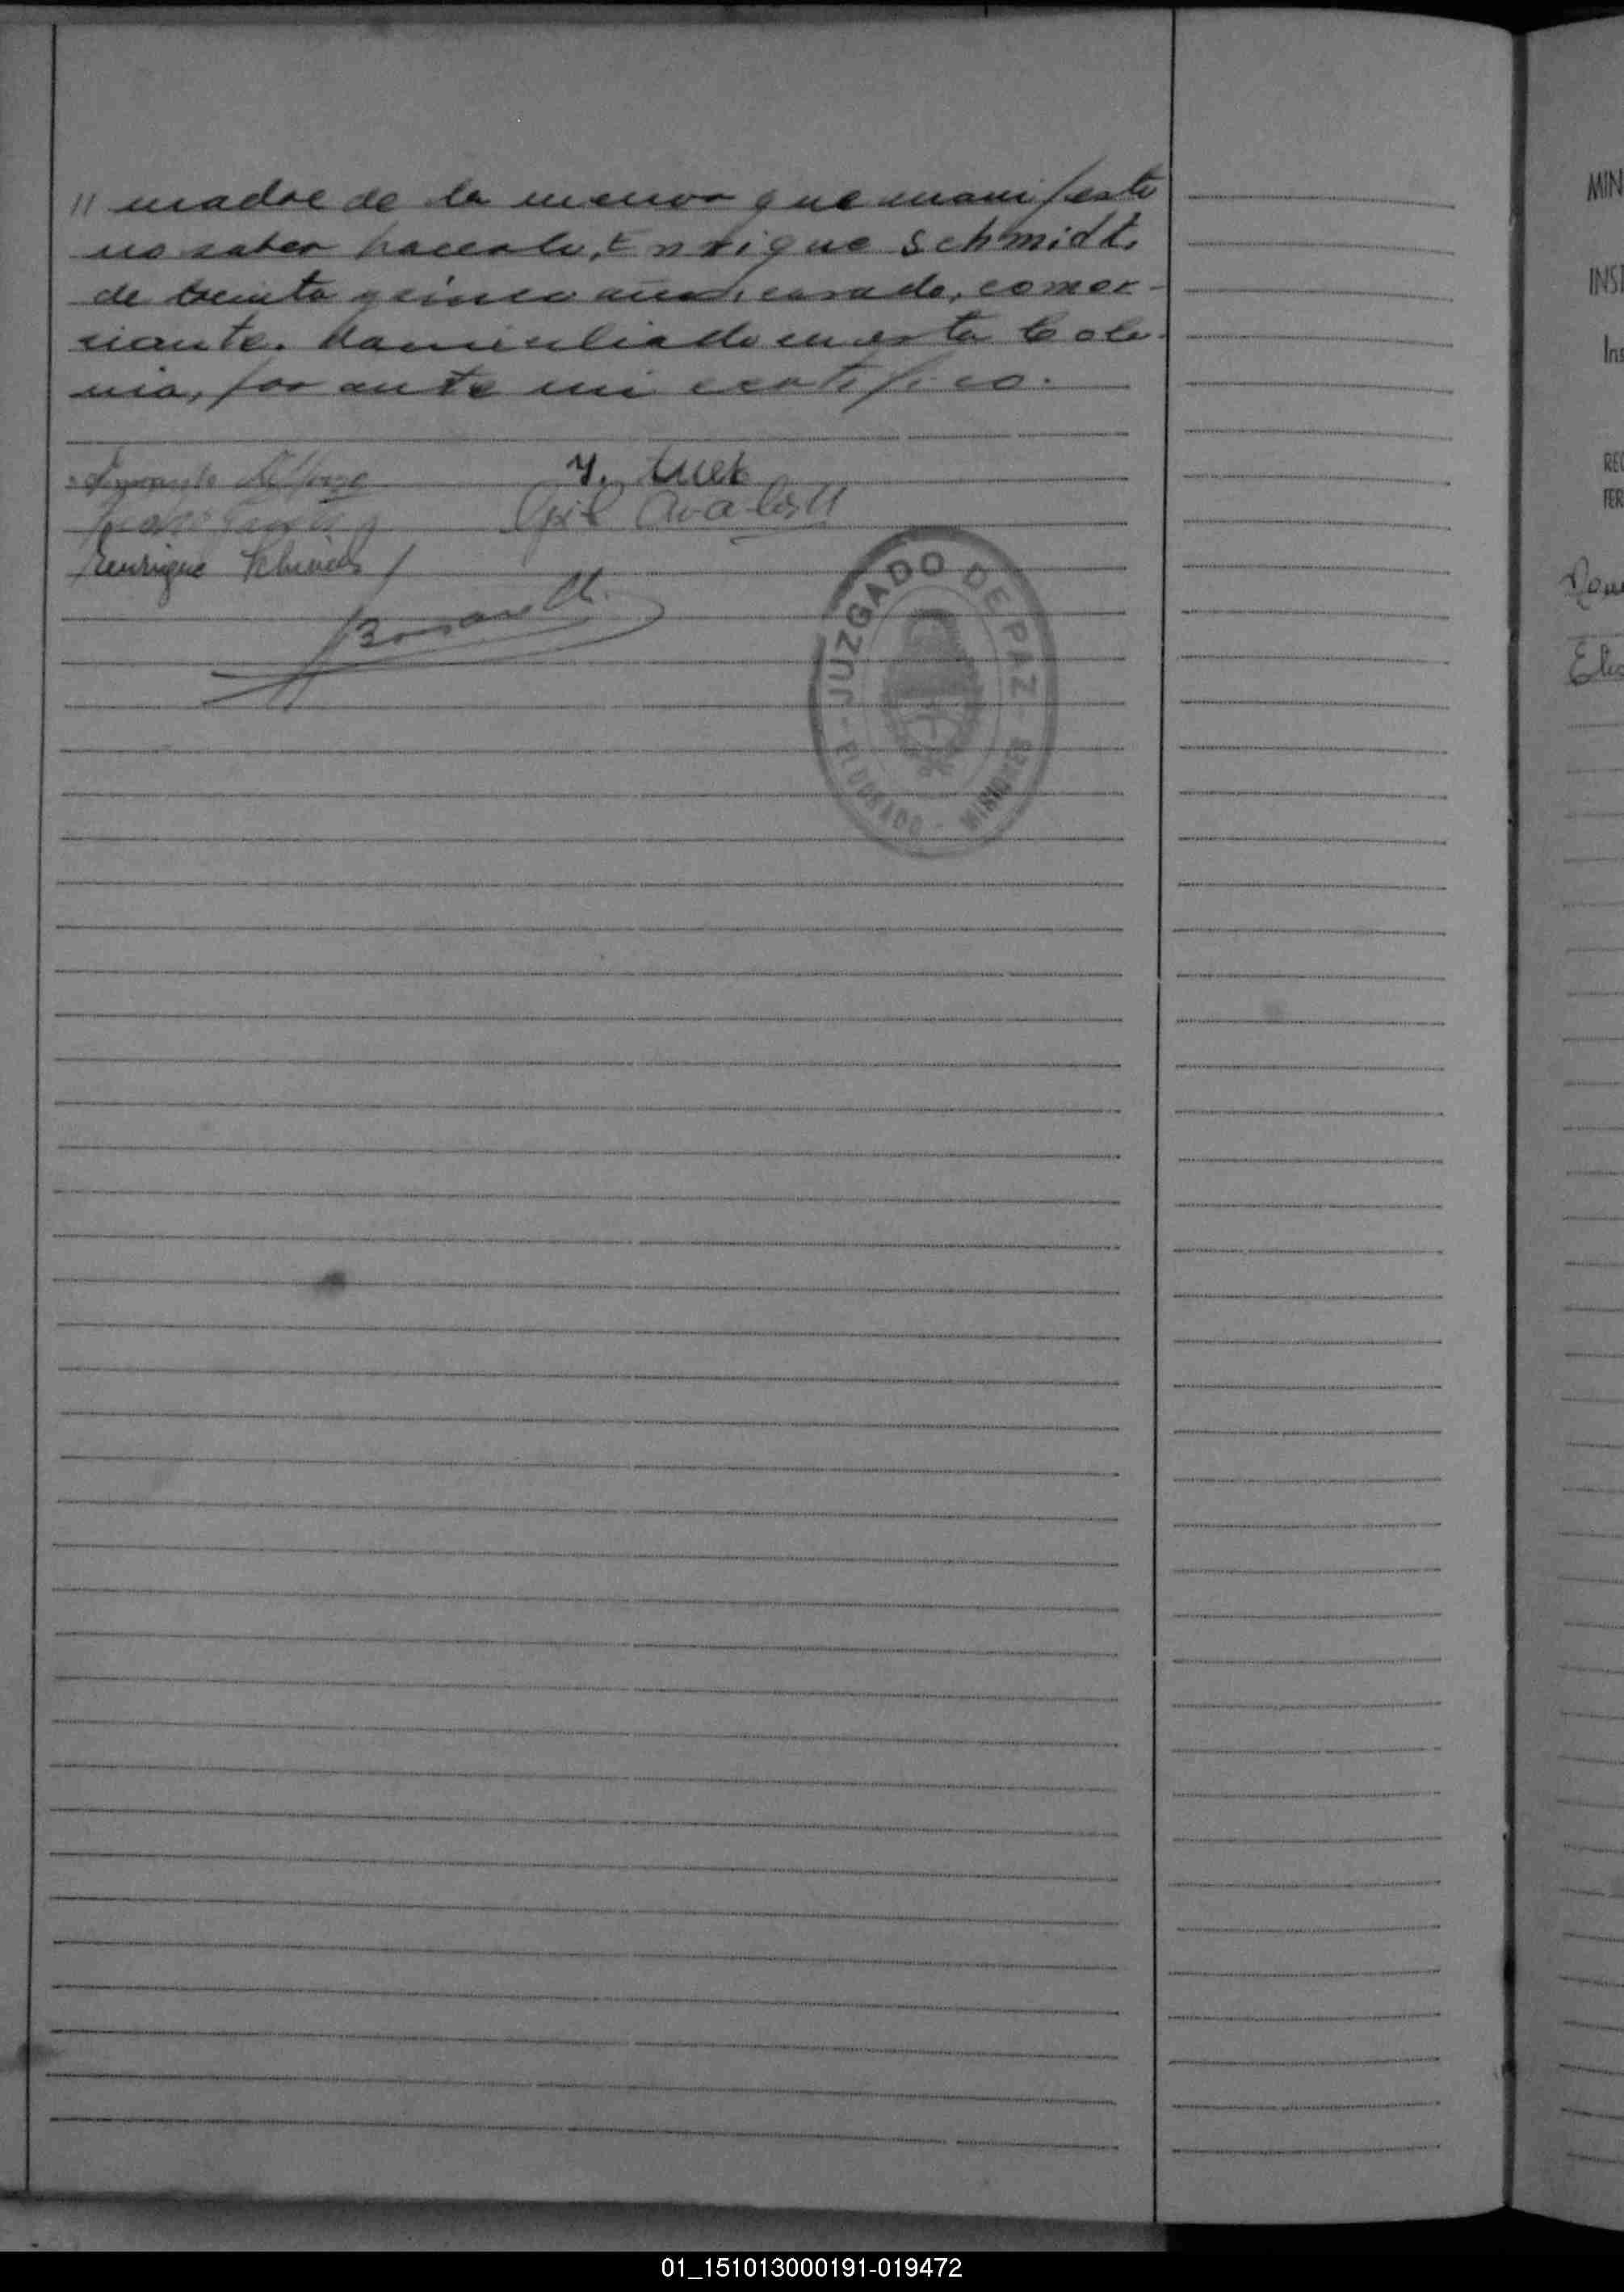 // madre de la menor que manifestó
no saber hacerlo, Enrique Schmidt,
de treinta y cinco años, casado, comer-
ciante, domiciliado en esta Colo-
nia, por ante mi certifico.
Gil Avalos
Enrique Schmidt
JUZGADO DE PAZ
ELDORADO - MISIONES
MIN
INST
Ins
REG
FER
01_151013000191-019472